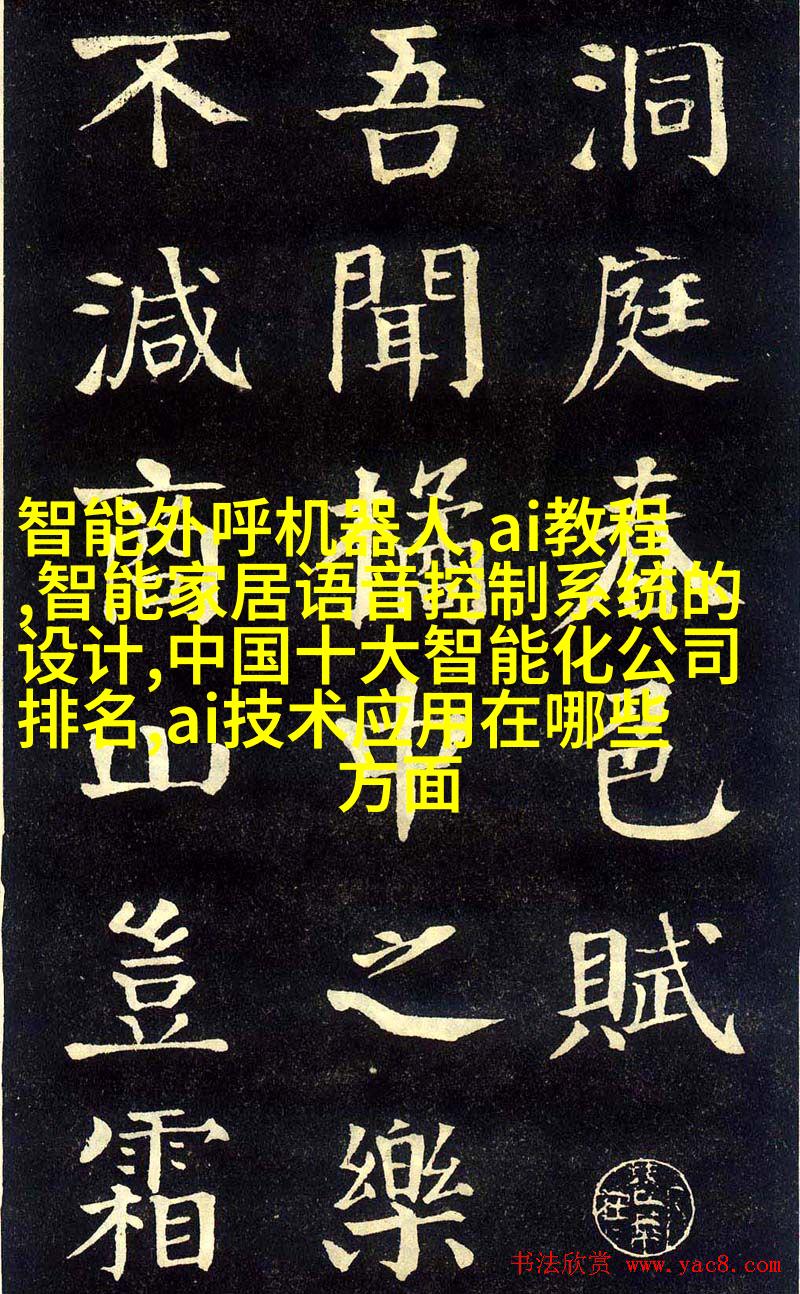 洞庭春色賦
吾聞橘中之樂
不減商山豈霜
智能外呼机器人,ai教程
,智能家居语音控制系统的
设计,中国十大智能化公司
排名,ai技术应用在哪些
方面
书法欣赏 www.yac8.com